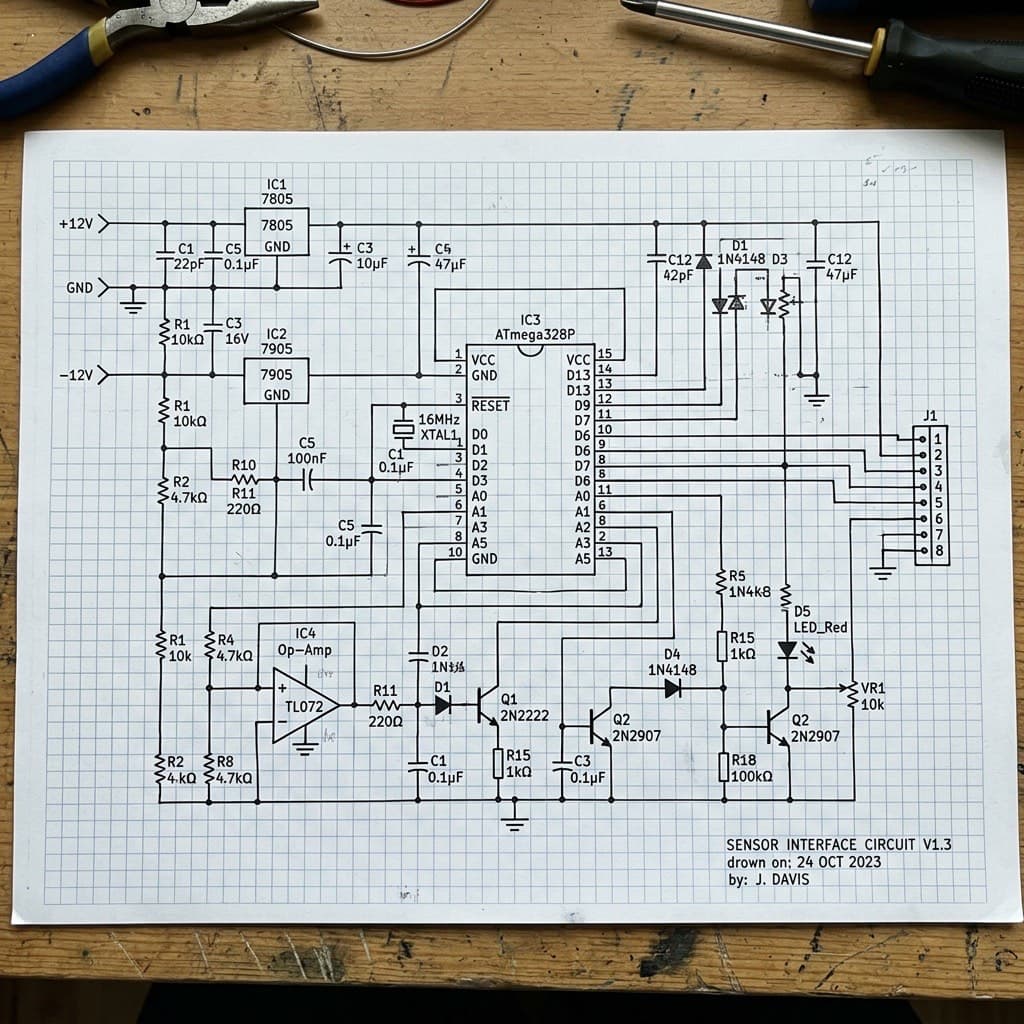 IC1
7805
+12V
7805
GND
C1
22pF
C5
0.1µF
C3
10µF
47µF
C12
42pF
D1
1N4148
D3
C12
47µF
GND
R1
10kΩ
C3
16V
IC2
7905
-12V
7905
GND
IC3
ATmega328P
1 VCC VCC 15
2 GND D13 14
D13 13
3 RESET D9 12
D7 11
D0 D6 10
1 D1 D6 9
3 D2 D7 8
4 D3 D6 8
5 A0 A0 11
6 A1 A1 6
7 A3 A2 8
8 A5 A3 2
10 GND A5 13
16MHz
XTAL1
C1
0.1µF
R1
10kΩ
R2
4.7kΩ
R10
R11
220Ω
C5
100nF
C5
0.1µF
J1
1
2
3
4
5
6
7
8
R1
10k
R4
4.7kΩ
IC4
Op-Amp
+
TL072
−
R11
220Ω
D2
D1
Q1
2N2222
R15
1kΩ
C1
0.1µF
C3
0.1µF
Q2
2N2907
D4
1N4148
R5
1N4k8
R15
1kΩ
R18
100kΩ
D5
LED_Red
Q2
2N2907
VR1
10k
R2
4.kΩ
R8
4.7kΩ
SENSOR INTERFACE CIRCUIT V1.3
drawn on: 24 OCT 2023
by: J. DAVIS